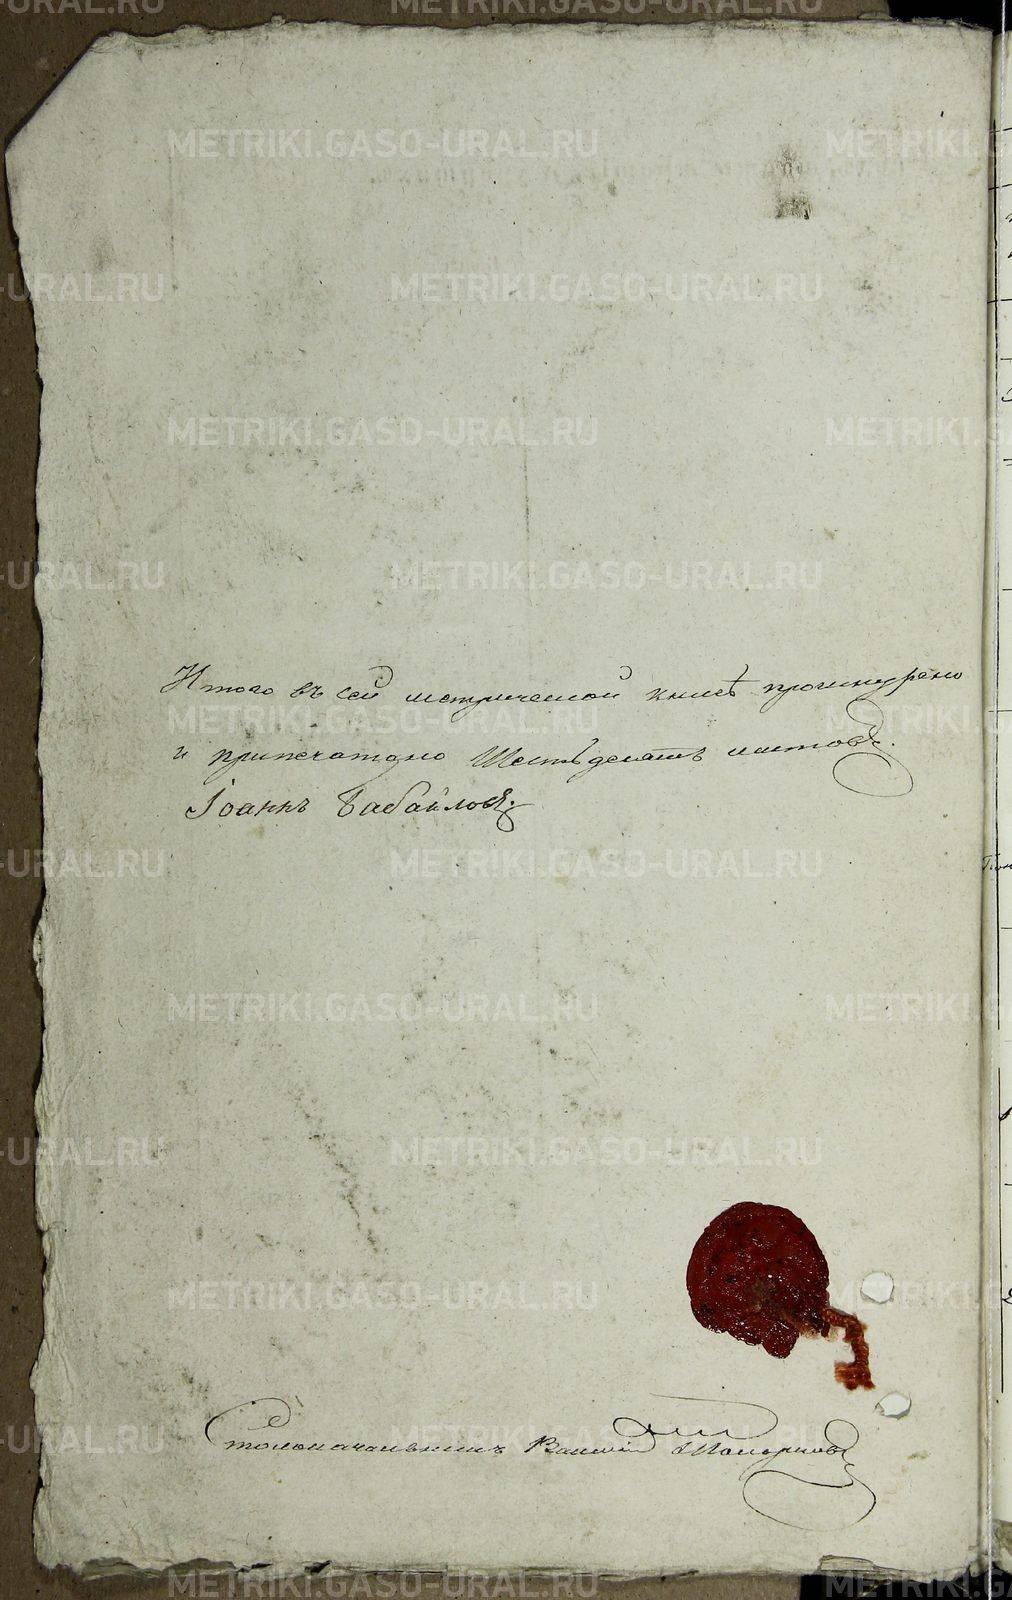 Итого въ сей метрической книгѣ прошнурено
и припечатано Шестьдесятъ листовъ.
Іоаннъ Бабайловъ
Столоначальникъ Василій
METRIKI.GASO-URAL.RU